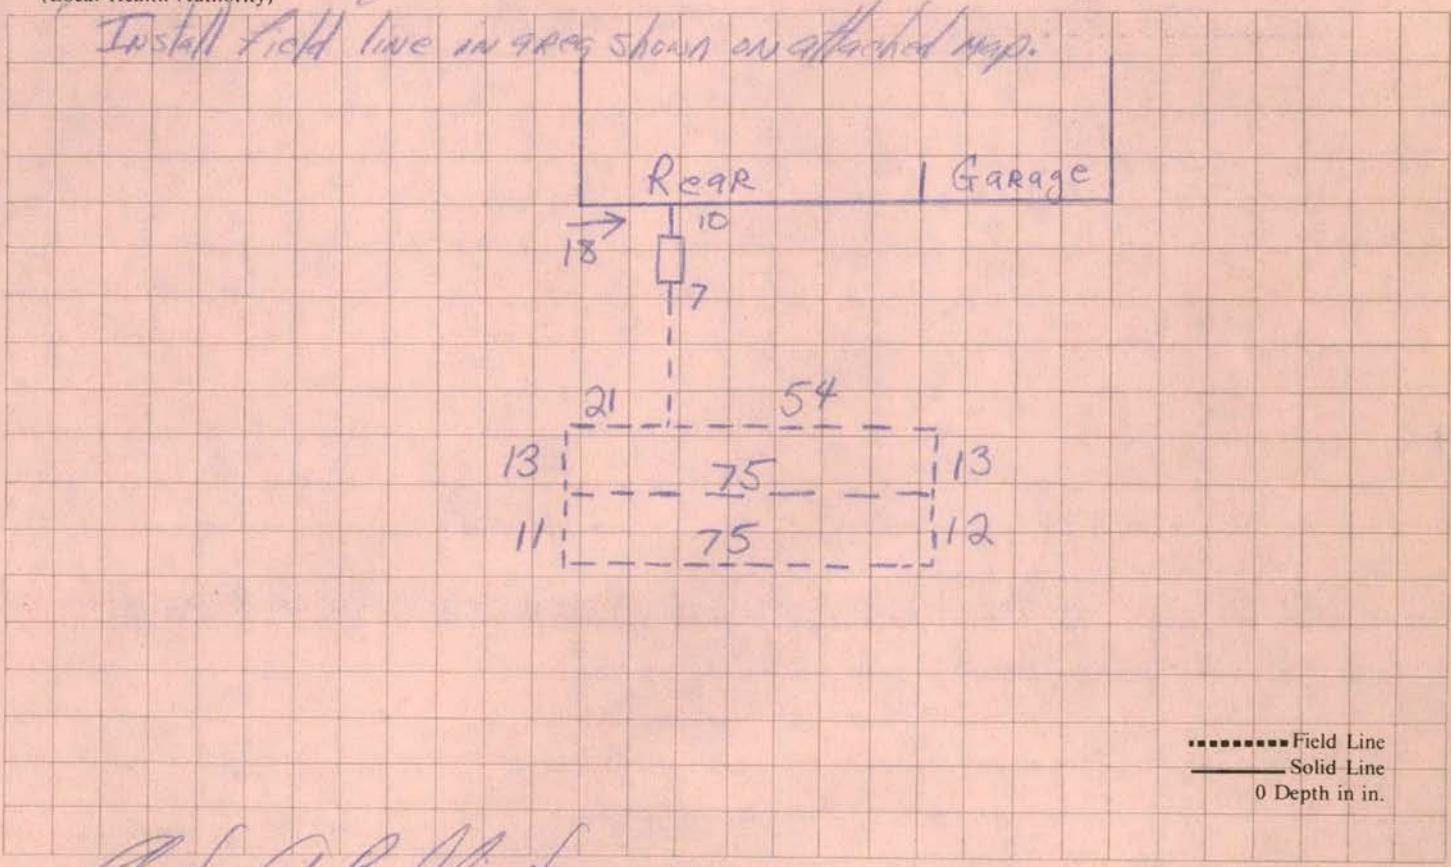 (Local Health Authority)
Install field line in area shown on attached map.
Rear Garage
10
18
7
21 54
13 75 13
11 75 12
Field Line
Solid Line
0 Depth in in.